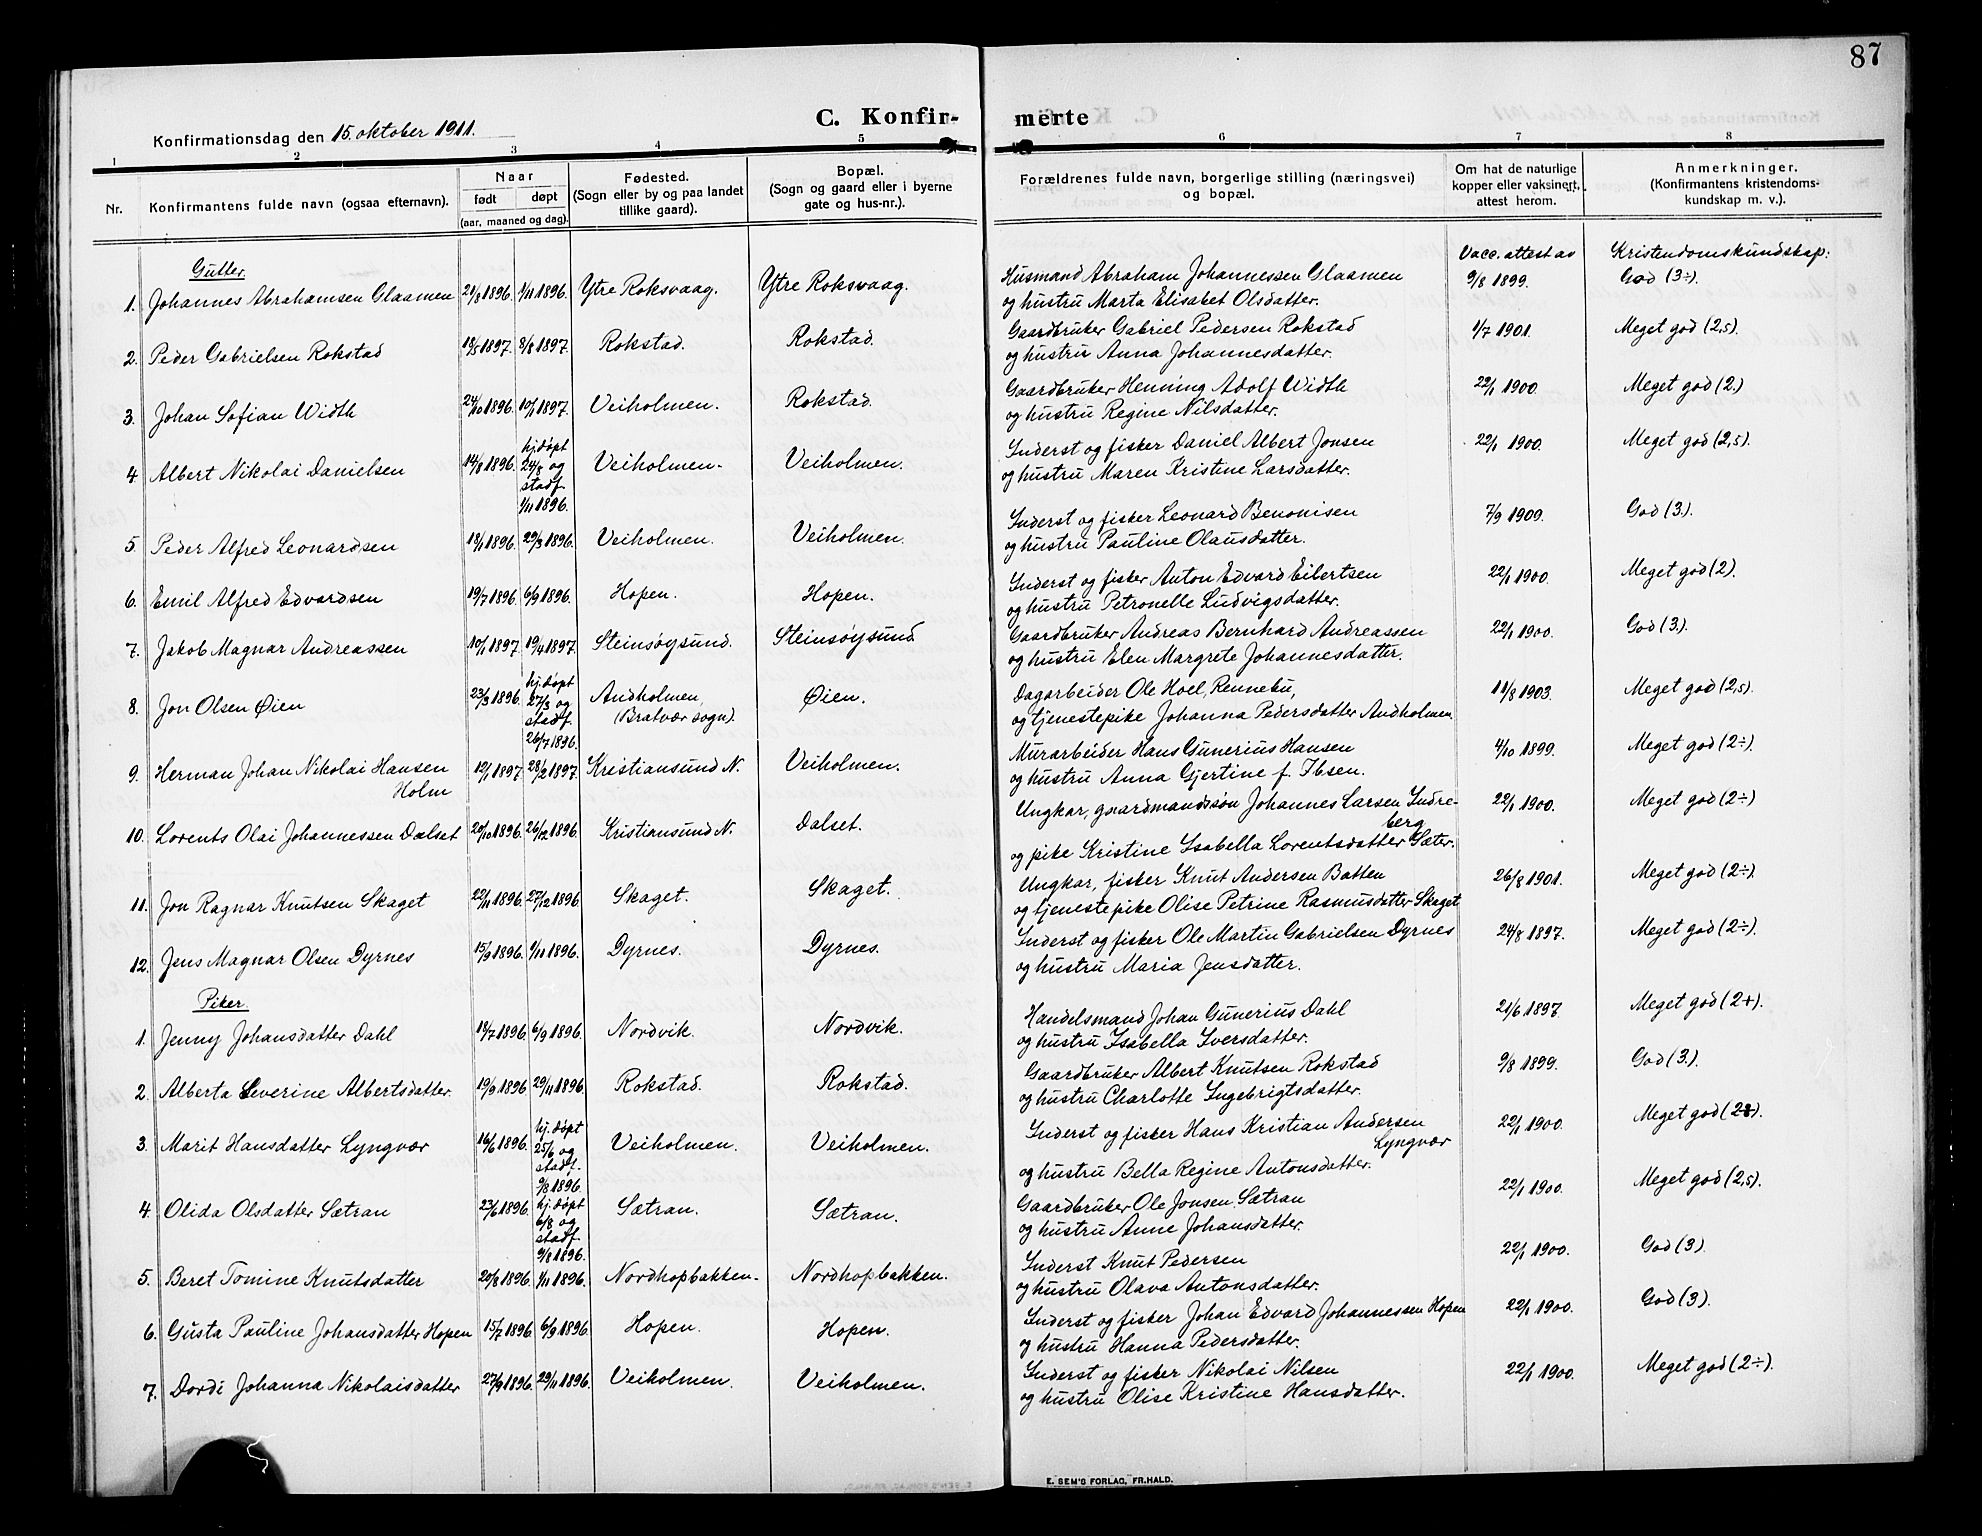 87
C. Konfir-
merte
Konfirmationsdag den 15. oktober 1911.
1 2 3 4 5 6 7 8
Nr.
Konfirmantens fulde navn (ogsaa efternavn).
Naar
født døpt
(aar, maaned og dag).
Fødested.
(Sogn eller by og paa landet
tillike gaard).
Bopæl.
(Sogn og gaard eller i byerne
gate og hus-nr.).
Forældrenes fulde navn, borgerlige stilling (næringsvei)
og bopæl.
Om hat de naturlige
kopper eller vaksinert,
attest herom.
Anmerkninger.
(Konfirmantens kristendoms-
kundskap m. v.).
Gutter.
Vacc. attest av Kristendomskundskap:
1. Johannes Abrahamsen Glaamen 21/8 1896. 1/11 1896. Ytre Roksvaag. Ytre Roksvaag. Husmand Abraham Johannessen Glaamen 9/8 1899. God (3÷).
og hustru Marta Elisabet Olsdatter.
2. Peder Gabrielsen Rokstad 18/5 1897. 8/8 1897. Rokstad. Rokstad. Gaardbruker Gabriel Pedersen Rokstad 1/7 1901. Meget god (2,5).
og hustru Anna Johannesdatter.
3. Johan Sofian Width 24/10 1896. 10/1 1897. Veiholmen. Rokstad. Gaardbruker Henning Adolf Width 22/1 1900. Meget god (2.)
og hustru Regine Nilsdatter.
4 Albert Nikolai Danielsen 14/8 1896. hj. døpt
24/8 og
stadf.
1/11 1896. Veiholmen. Veiholmen. Inderst og fisker Daniel Albert Jonsen 22/1 1900. Meget god (2,5).
og hustru Maren Kristine Larsdatter.
5. Peder Alfred Leonardsen 18/1 1896. 29/3 1896. Veiholmen. Veiholmen. Inderst og fisker Leonard Benonisen 7/9 1900. God (3.).
og hustru Pauline Olausdatter.
6. Emil Alfred Edvardsen 19/7 1896. 6/9 1896. Hopen. Hopen. Inderst og fisker Anton Edvard Eibertsen 22/1 1900. Meget god (2).
og hustru Petronelle Ludvigsdatter.
7. Jakob Magnar Andreassen 10/1 1897. 19/4 1897. Steinsøysund. Steinsøysund. Gaardbruker Andreas Bernhard Andreassen 22/1 1900. God (3.).
og hustru Elen Margrete Johannesdatter.
8. Jon Olsen Øien 23/3 1896. hj. døpt
27/3 og
stadf.
26/7 1896. Andholmen,
(Bratvær sogn). Øien. Dagarbeider Ole Hoel, Rennebu, 11/8 1903. Meget god (2,5).
og tjenestepike Johanna Pedersdatter Andholmen.
9. Herman Johan Nikolai Hansen
Holm 12/1 1897. 28/2 1897. Kristiansund N. Veiholmen. Murarbeider Hans Gunerius Hansen 4/10 1899. Meget god (2÷).
og hustru Anna Gjertine f. Ibsen.
10. Lorents Olai Johannessen Dalset 20/10 1896. 26/12 1896. Kristiansund N. Dalset. Ungkar, gaardmandssøn Johannes Larsen Indre-
berg 22/1 1900. Meget god (2÷)
og pike Kristine Isabella Lorentsdatter Sæter.
11. Jon Ragnar Knutsen Skaget 22/11 1896. 27/12 1896 Skaget. Skaget. Ungkar, fisker Knut Andersen Batten 26/8 1901. Meget god (2÷).
og tjenestepike Olise Petrine Rasmusdatter Skaget
12. Jens Magnar Olsen Dyrnes 15/9 1896. 1/11 1896. Dyrnes. Dyrnes. Inderst og fisker Ole Martin Gabrielsen Dyrnes 24/8 1897. Meget god (2÷).
og hustru Maria Jensdatter.
Piker.
1. Jenny Johansdatter Dahl 18/7 1896. 6/9 1896. Nordvik. Nordvik. Handelsmand Johan Gunerius Dahl 21/6 1897. Meget god (2+).
og hustru Isabella Iversdatter.
2. Alberta Severine Albertsdatter. 19/9 1896. 29/11 1896. Rokstad. Rokstad. Gaardbruker Albert Knutsen Rokstad 9/8 1899. God (3.).
og hustru Charlotte Ingebrigtsdatter.
3. Marit Hansdatter Lyngvær 16/6 1896. hj. døpt
25/6 og
stadf.
9/8 1896. Veiholmen. Veiholmen. Inderst og fisker Hans Kristian Andersen
Lyngvær 22/1 1900. Meget god
og hustru Bella Regine Antonsdatter.
4. Olida Olsdatter Sætran 23/6 1896. hj. døpt
6/8 og
stadf.
9/8 1896. Sætran. Sætran. Gaardbruker Ole Jonsen Sætran 22/1 1900. Meget god (2,5).
og hustru Anne Johansdatter.
5. Beret Tomine Knutsdatter 20/8 1896. 1/11 1896. Nordhopbakken. Nordhopbakken. Inderst Knut Pedersen 22/1 1900. God (3).
og hustru Olava Antonsdatter.
6. Gusta Pauline Johansdatter Hopen 15/7 1896. 6/9 1896. Hopen. Hopen. Inderst og fisker Johan Edvard Johannessen Hopen 22/1 1900. God (3).
og hustru Hanna Pedersdatter.
7. Dordi Johanna Nikolaisdatter 27/9 1896. 29/11 1896. Veiholmen. Veiholmen. Inderst og fisker Nikolai Nilsen 22/1 1900. Meget god (2÷).
og hustru Olise Kristine Hansdatter.
E. SEM'S FORLAG, FR.HALD.